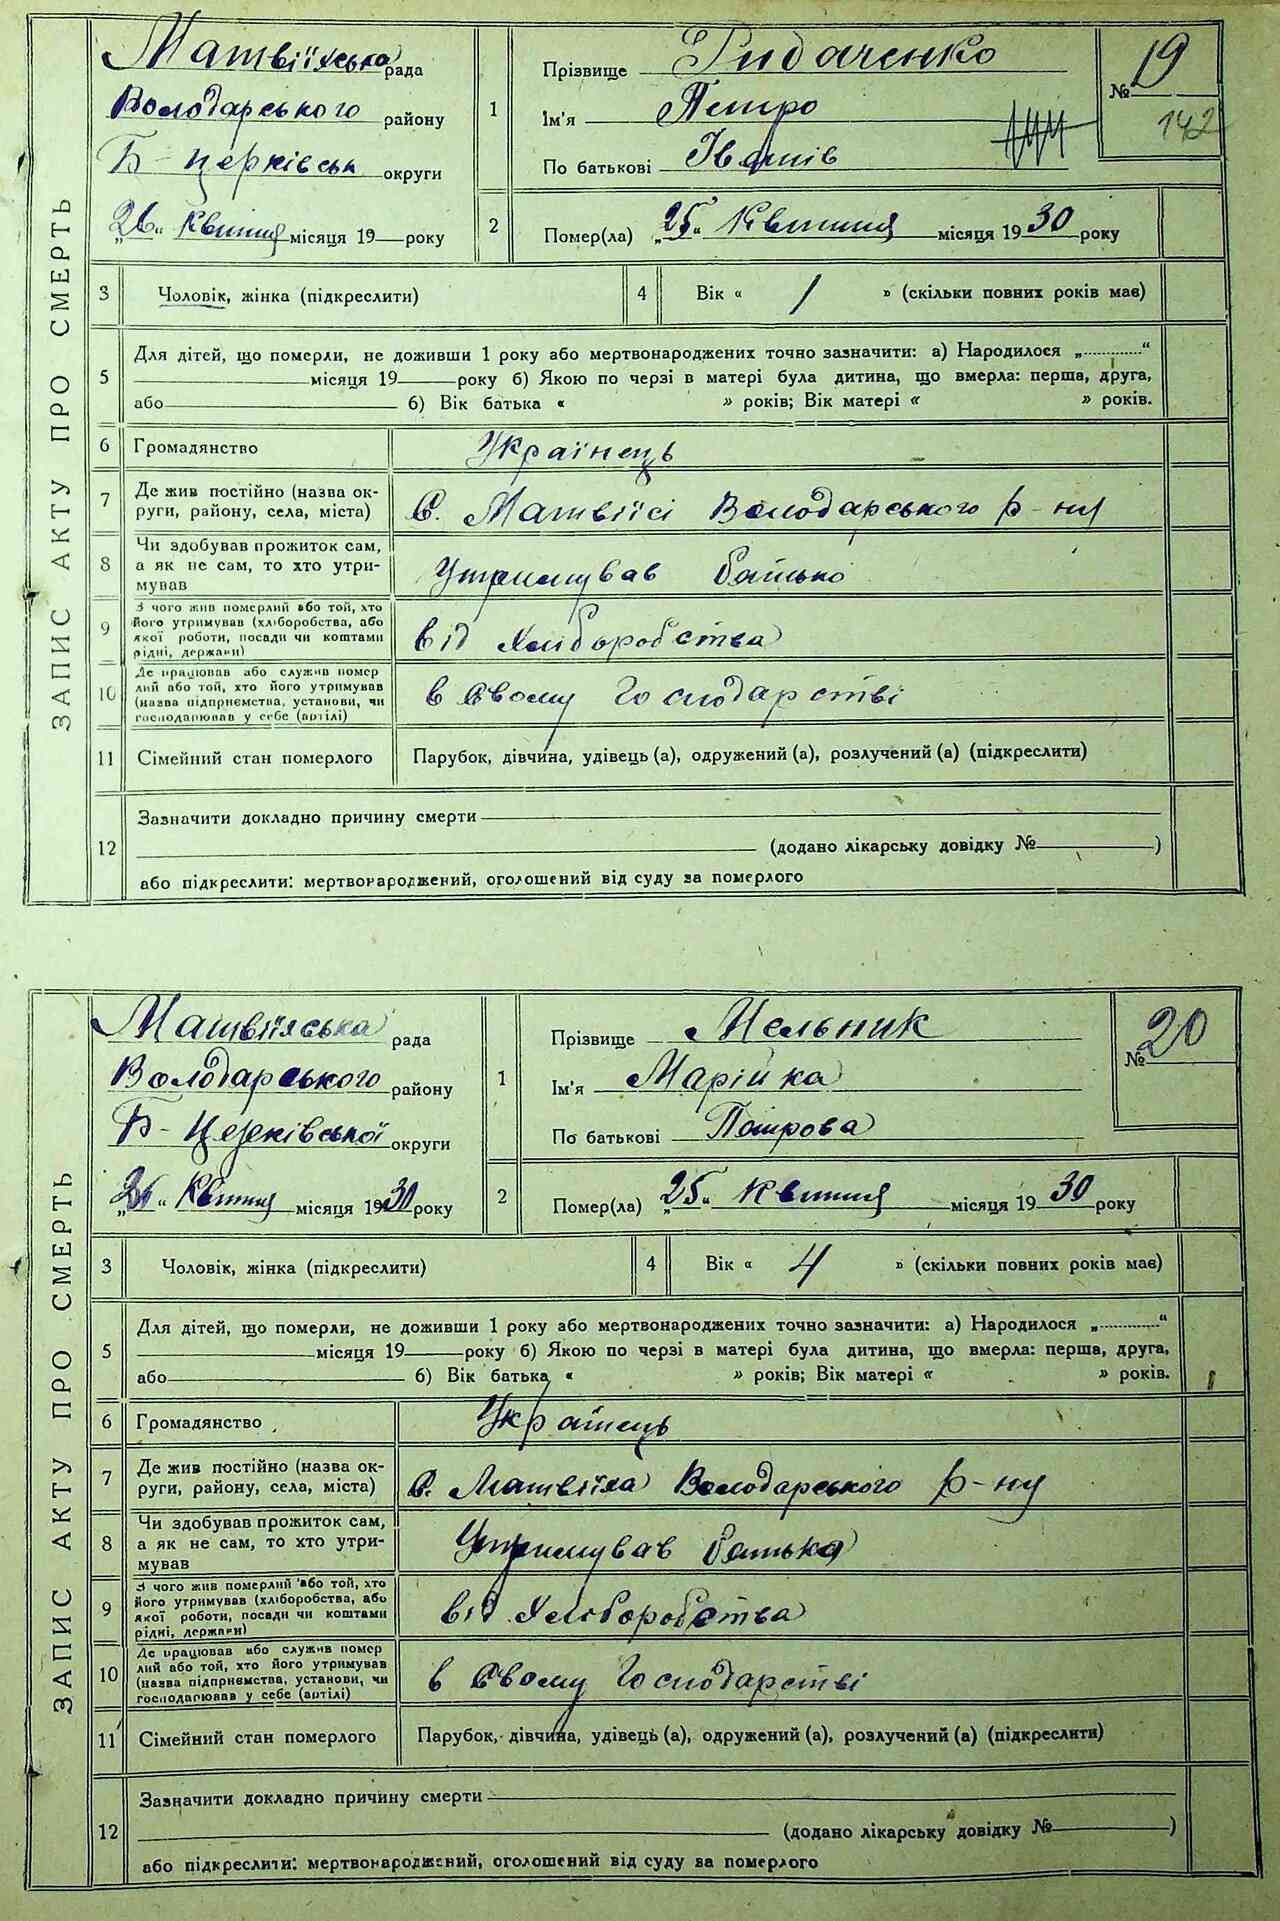 ЗАПИС АКТУ ПРО СМЕРТЬ
Матвіїхська рада
Володарського району
Б-Церківськ округи
„26“ Квітня місяця 19 року
1
Прізвище
Ім'я Петро
По батькові Іванів
№ 19
142
2
Помер(ла) „25“ Квітня місяця 1930 року
3
Чоловік, жінка (підкреслити)
4
Вік « 1 » (скільки повних років має)
5
Для дітей, що померли, не доживши 1 року або мертвонароджених точно зазначити: а) Народилося „ “
місяця 19 року б) Якою по черзі в матері була дитина, що вмерла: перша, друга,
або б) Вік батька « » років; Вік матері « » років.
6
Громадянство Українець
7
Де жив постійно (назва ок-
руги, району, села, міста)
С. Володарського р-ну
8
Чи здобував прожиток сам,
а як не сам, то хто утри-
мував
Утримував батько
9
З чого жив померлий або той, хто
його утримував (хліборобства, або
якої роботи, посади чи коштами
рідні, держави)
від Хліборобства
10
Де працював або служив помер
лий або той, хто його утримував
(назва підприємства, установи, чи
господарював у себе (артілі)
в Свому Господарстві
11
Сімейний стан померлого
Парубок, дівчина, удівець (а), одружений (а), розлучений (а) (підкреслити)
12
Зазначити докладно причину смерти
(додано лікарську довідку № )
або підкреслити: мертвонароджений, оголошений від суду за померлого
ЗАПИС АКТУ ПРО СМЕРТЬ
Матвіїхська рада
Володарського району
Б-Церківської округи
Квітня місяця 1930 року
1
Прізвище Мельник
Ім'я Марійка
По батькові Петрова
№ 20
2
Помер(ла) „25“ Квітня місяця 1930 року
3
Чоловік, жінка (підкреслити)
4
Вік « 4 » (скільки повних років має)
5
Для дітей, що померли, не доживши 1 року або мертвонароджених точно зазначити: а) Народилося „ “
місяця 19 року б) Якою по черзі в матері була дитина, що вмерла: перша, друга,
або б) Вік батька « » років; Вік матері « » років.
6
Громадянство Українець
7
Де жив постійно (назва ок-
руги, району, села, міста)
С. Матвіїха Володарського р-ну
8
Чи здобував прожиток сам,
а як не сам, то хто утри-
мував
Утримував батько
9
З чого жив померлий або той, хто
його утримував (хліборобства, або
якої роботи, посади чи коштами
рідні, держави)
від Хліборобства
10
Де працював або служив помер
лий або той, хто його утримував
(назва підприємства, установи, чи
господарював у себе (артілі)
в Свому Господарстві
11
Сімейний стан померлого
Парубок, дівчина, удівець (а), одружений (а), розлучений (а) (підкреслити)
12
Зазначити докладно причину смерти
(додано лікарську довідку № )
або підкреслити: мертвонароджений, оголошений від суду за померлого